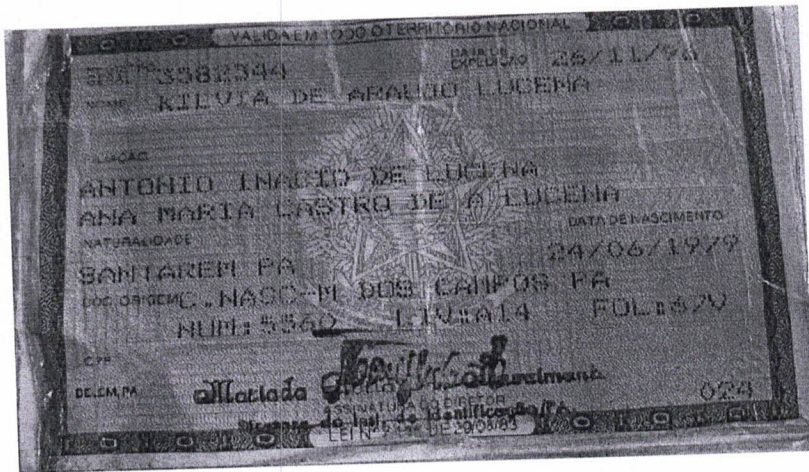 VALIDA EM TODO O TERRITÓRIO NACIONAL
3382344 DATA DE EXPEDIÇÃO 26/11/
NOME KILVIA DE ARAUJO LUCENA
FILIAÇÃO
ANTONIO INACIO DE LUCENA
ANA MARIA CASTRO DE A LUCENA
NATURALIDADE DATA DE NASCIMENTO
SANTAREM PA 24/06/1979
DOC ORIGEM C.NASC-M DOS CAMPOS PA
NUM:5560 LIV:A14 FOL:67V
CPF
BELEM, PA 024
ASSINATURA DO DIRETOR
LEI Nº DE 29/08/83